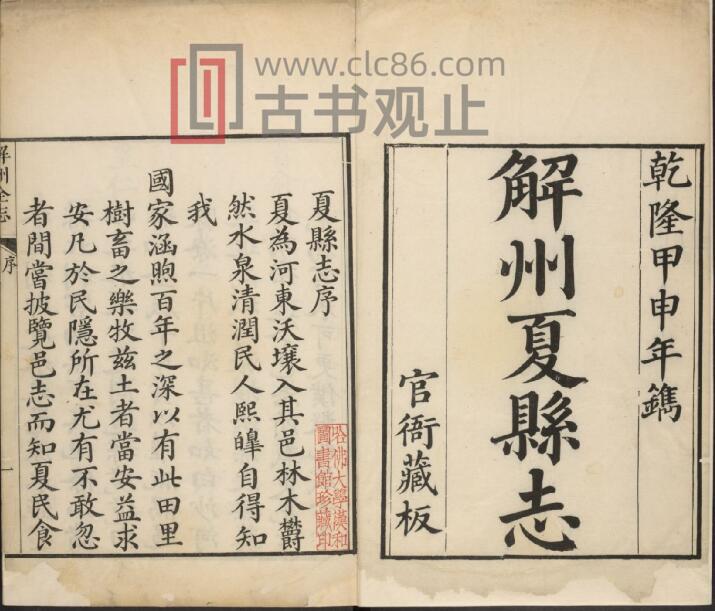 www.clc86.com
古书观止
乾隆甲申年鐫
解州夏縣志
官衙藏板
夏縣志序
夏為河東沃壤入其邑林木欝
然水泉清潤民人熙皞自得知
我
國家涵煦百年之深以有此田里
樹畜之樂牧茲土者當安益求
安凡於民隱所在尤有不敢忽
者間嘗披覽邑志而知夏民食
哈佛大學漢和
圖書館珍藏印
解州全志
序
一